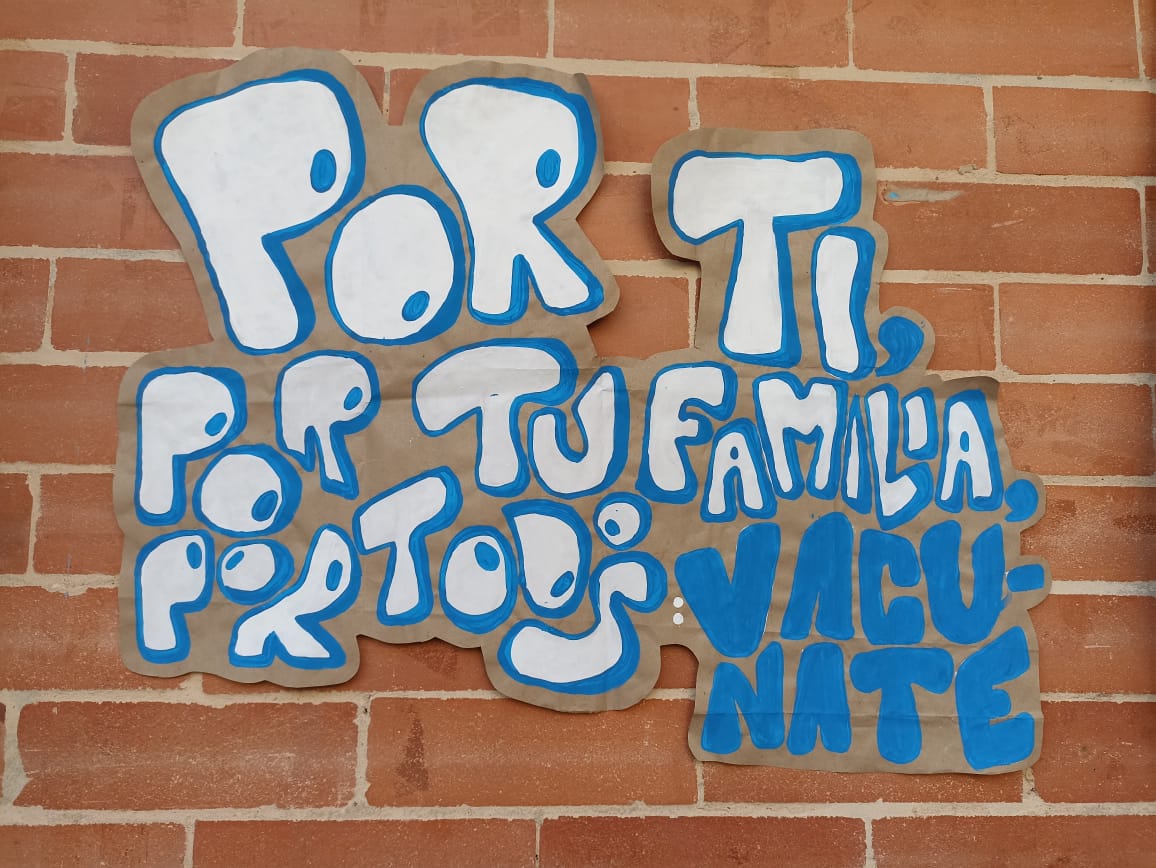 POR TI,
POR TU FAMILIA,
POR TODOS: VACU-
NATE